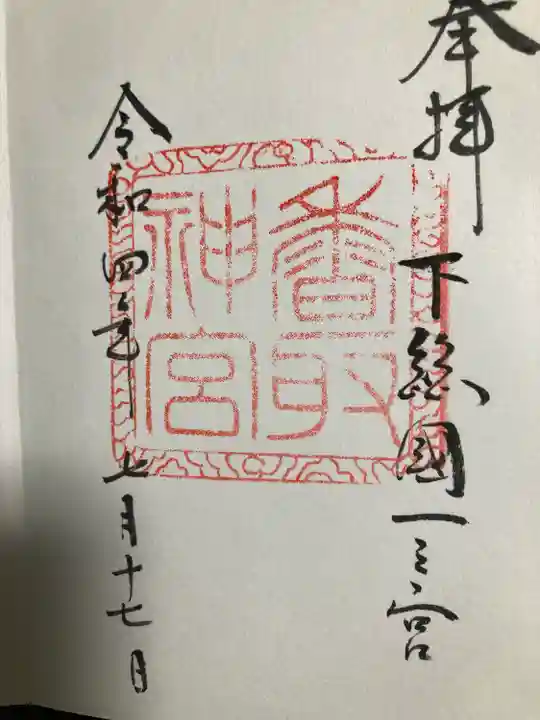 奉拝
下総國一之宮
香取
神宮
令和四年
七月十七日